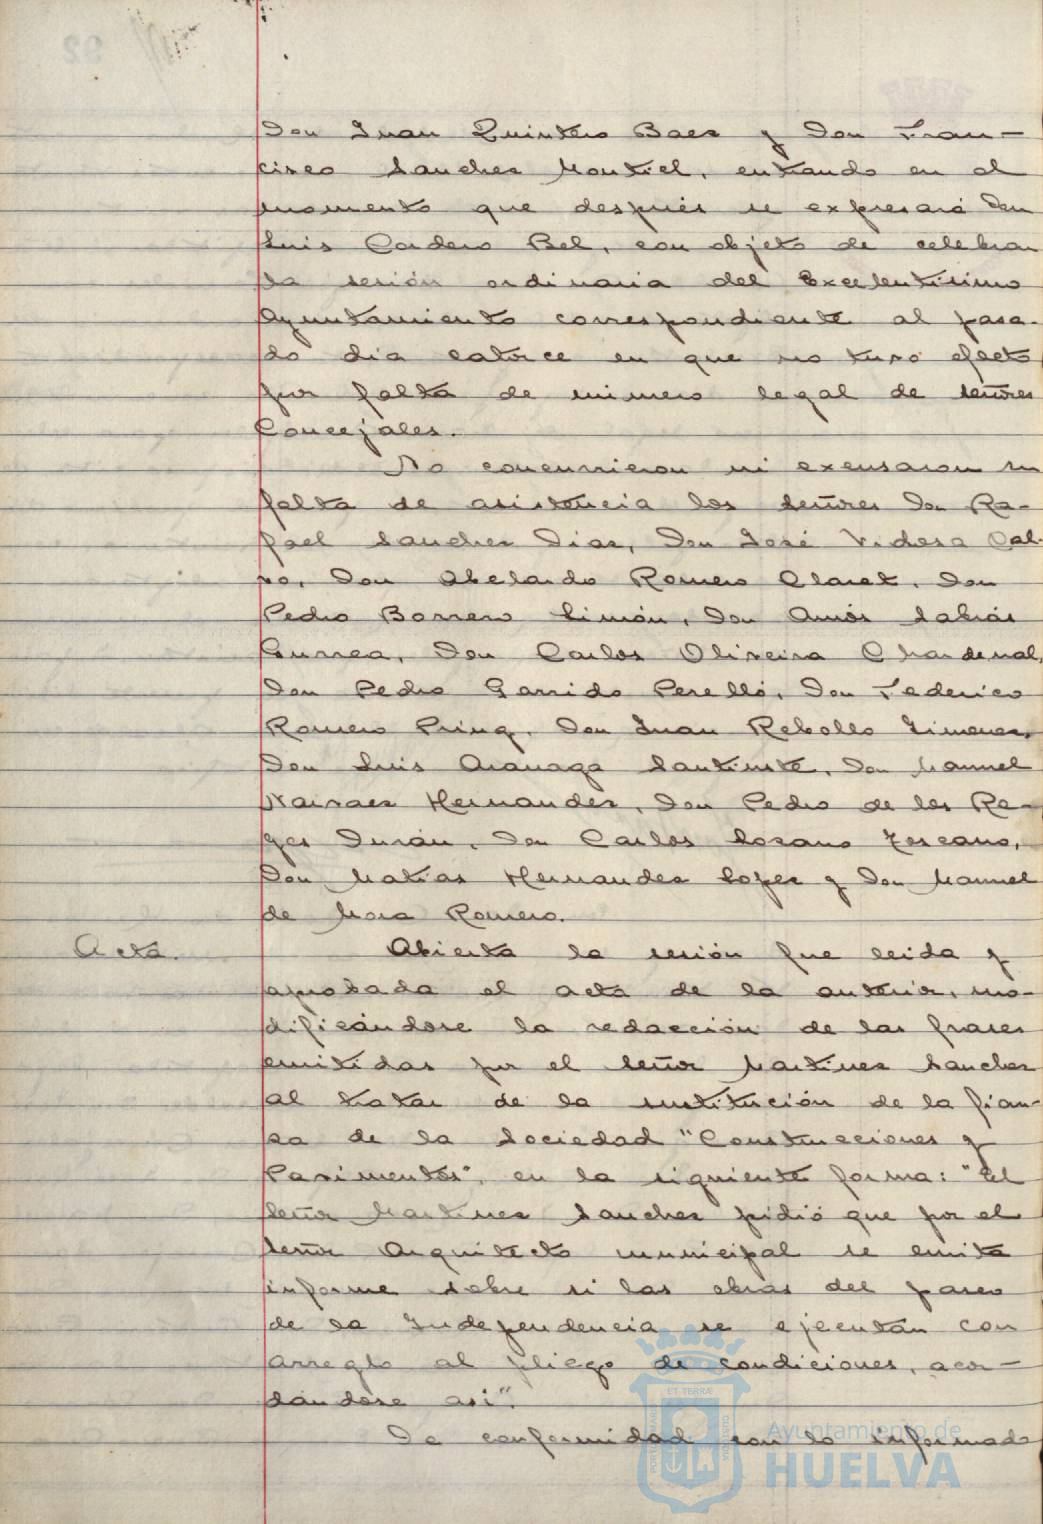 Don Juan Quintero Baez y Don Fran-
cisco Sanchez Montiel, entrando en el
momento que después se expresará Don
Luis Cordero Bel, con objeto de celebrar
la sesión ordinaria del Excelentísimo
Ayuntamiento correspondiente al pasa-
do dia catorce en que no tuvo efecto
por falta de número legal de señores
Concejales.
No concurrieron ni excusaron su
falta de asistencia los señores Don Ra-
fael Sanchez Diaz, Don José Vidosa Cal-
vo, Don Abelardo Romero Claret, Don
Pedro Borrero Limón, Don Amós Sabrás
Gurrea, Don Carlos Oliveira Chardenal,
Don Pedro Garrido Perelló, Don Federico
Romero Pring, Don Juan Rebollo Jimenez,
Don Luis Aranaga Don Manuel
Narvaez Hernandez, Don Pedro de los Re-
yes Durán, Don Carlos Lozano Toscano,
Don Matias Hernandez Lopez y Don Manuel
de Mora Romero.
Acta.
Abierta la sesión fue leida y
aprobada el acta de la anterior, mo-
dificándose la redacción de las frases
emitidas por el señor Martinez Sanchez
al tratar de la sustitución de la fian-
za de la Sociedad "Construcciones y
Pavimentos", en la siguiente forma: "El
señor Martinez Sanchez pidió que por el
señor Arquitecto municipal se emita
informe sobre si las obras del paseo
de la Independencia se ejecután con
arreglo al pliego de condiciones, acor-
dandose asi".
De conformidad con lo informado
ET TERRÆ
Ayuntamiento de
HUELVA